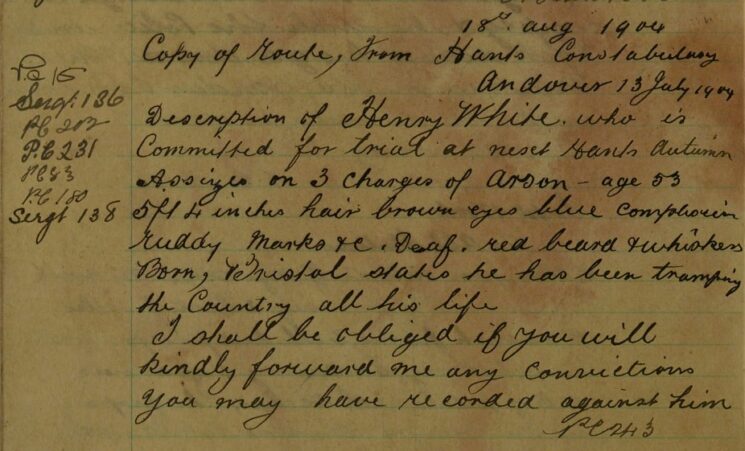 18th aug 1904
Copy of Route, From Hants Constabulary
Andover 13 July 1904
PC 15
Sergt. 136
PC 202
P.C 231
PC 83
PC 180
Sergt 138
Description of Henry White. who is
Committed for trial at next Hants Autumn
Assizes on 3 charges of Arson - age 53
5ft 4 inches hair brown eyes blue complexion
ruddy Marks &c. Deaf. red beard & whiskers
Born, Bristol states he has been tramping
the Country all his life
I shall be obliged if you will
kindly forward me any convictions
you may have recorded against him
PC 243